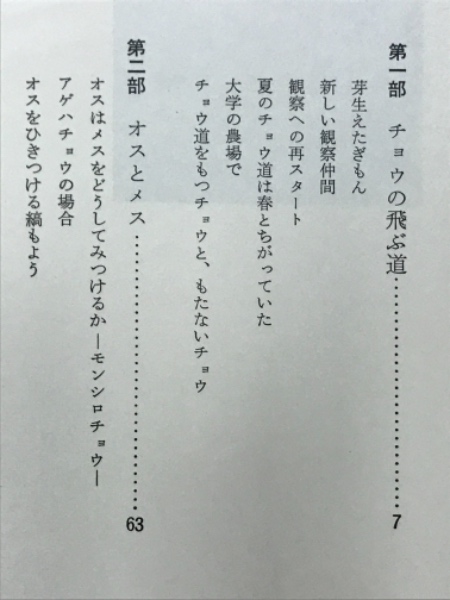 第一部　チョウの飛ぶ道……………………………7
芽生えたぎもん
新しい観察仲間
観察への再スタート
夏のチョウ道は春とちがっていた
大学の農場で
チョウ道をもつチョウと、もたないチョウ
第二部　オスとメス……………………………63
オスはメスをどうしてみつけるか―モンシロチョウ―
アゲハチョウの場合
オスをひきつける縞もよう